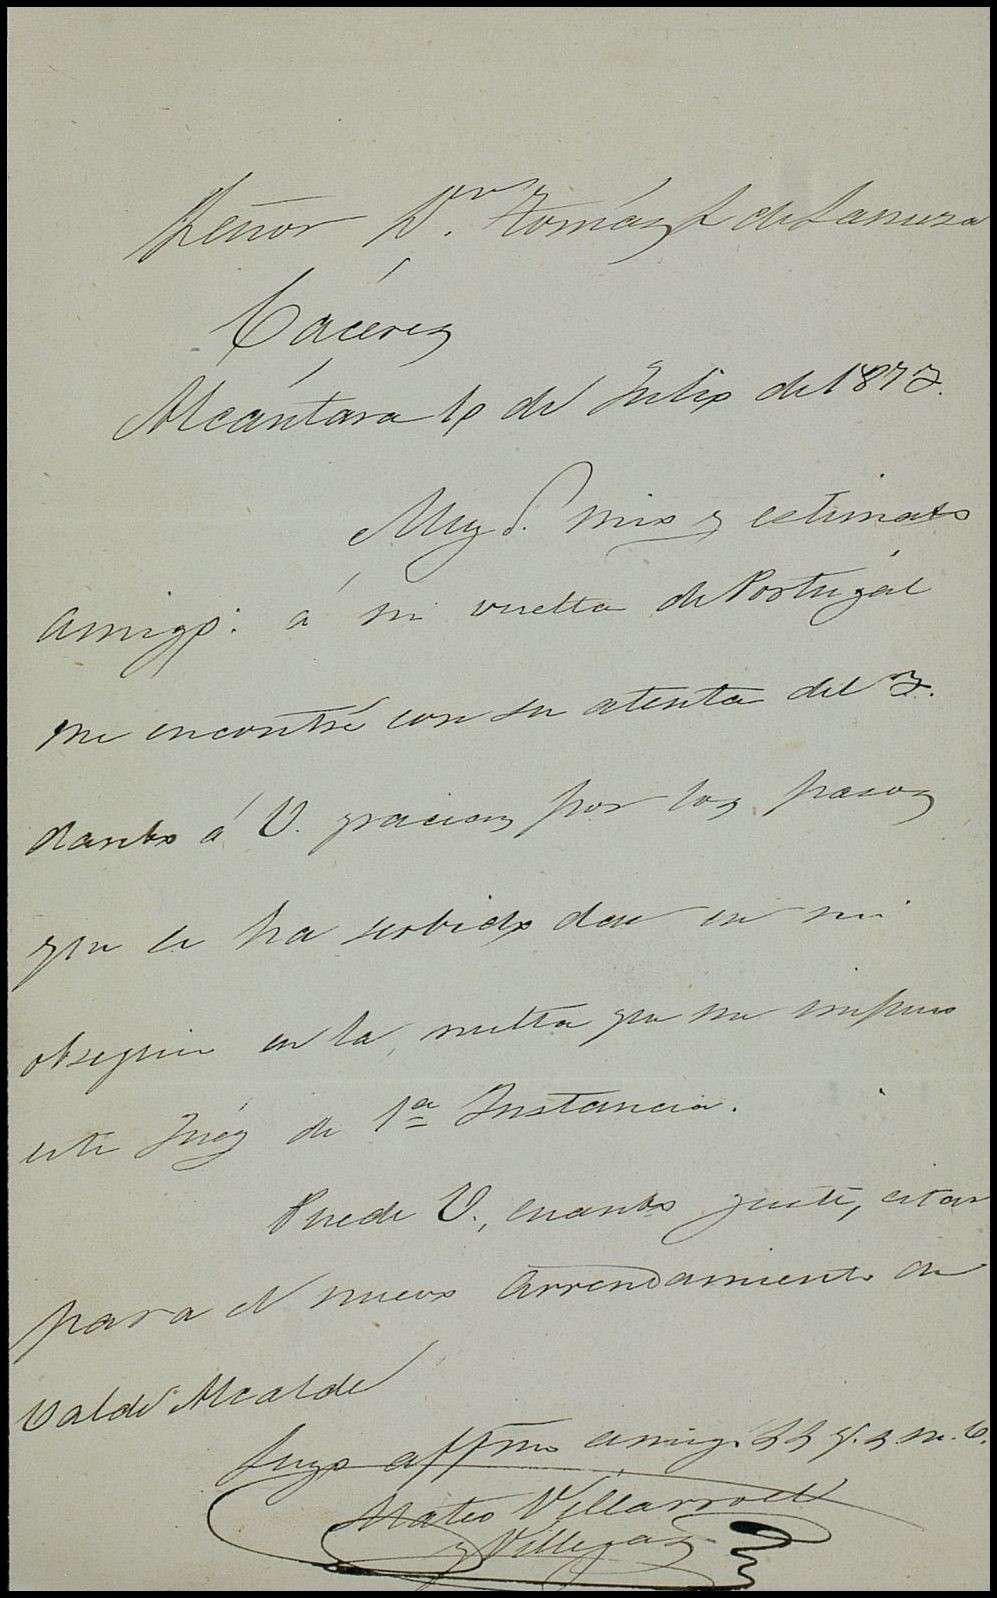 Señor Dn. Tomás L de Lanuza
Cáceres
Alcántara 10 de Julio de 1873.
Muy S. mio y estimado
amigo: á mi vuelta de Portugál
me encontré con su atenta del 3.
dando á V. gracias por los pasos
que se ha serbido dar en mi
obsequio en la multa que me impuso
este Juéz de 1ª Instancia.
Puede V., cuando guste, citar
para el nuevo arrendamiento de
Valde Alcalde
Suyo affmo amigo S S q. s m. b.
Mateo Villarroel
y Villegas